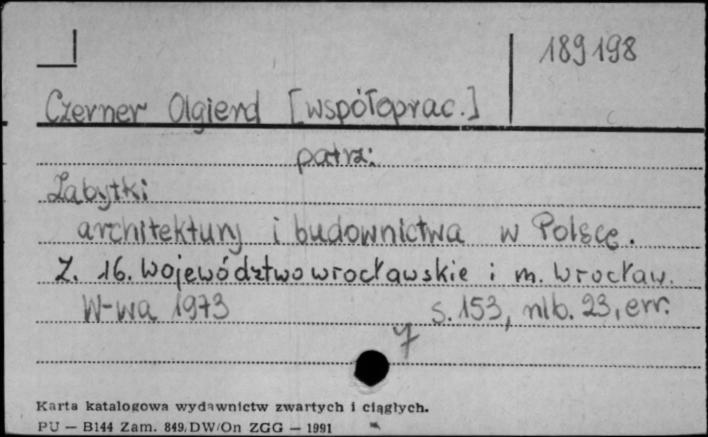 189198
Czerner Olgierd [współoprac.]
patrz:
Zabytki
architektury i budownictwa w Polsce.
Z. 16. Województwo wrocławskie i m. Wrocław.
W-wa 1973 s. 153, nlb. 23, err.
7
Karta katalogowa wydawnictw zwartych i ciągłych.
PU — B144 Zam. 849/DW/On ZGG — 1991